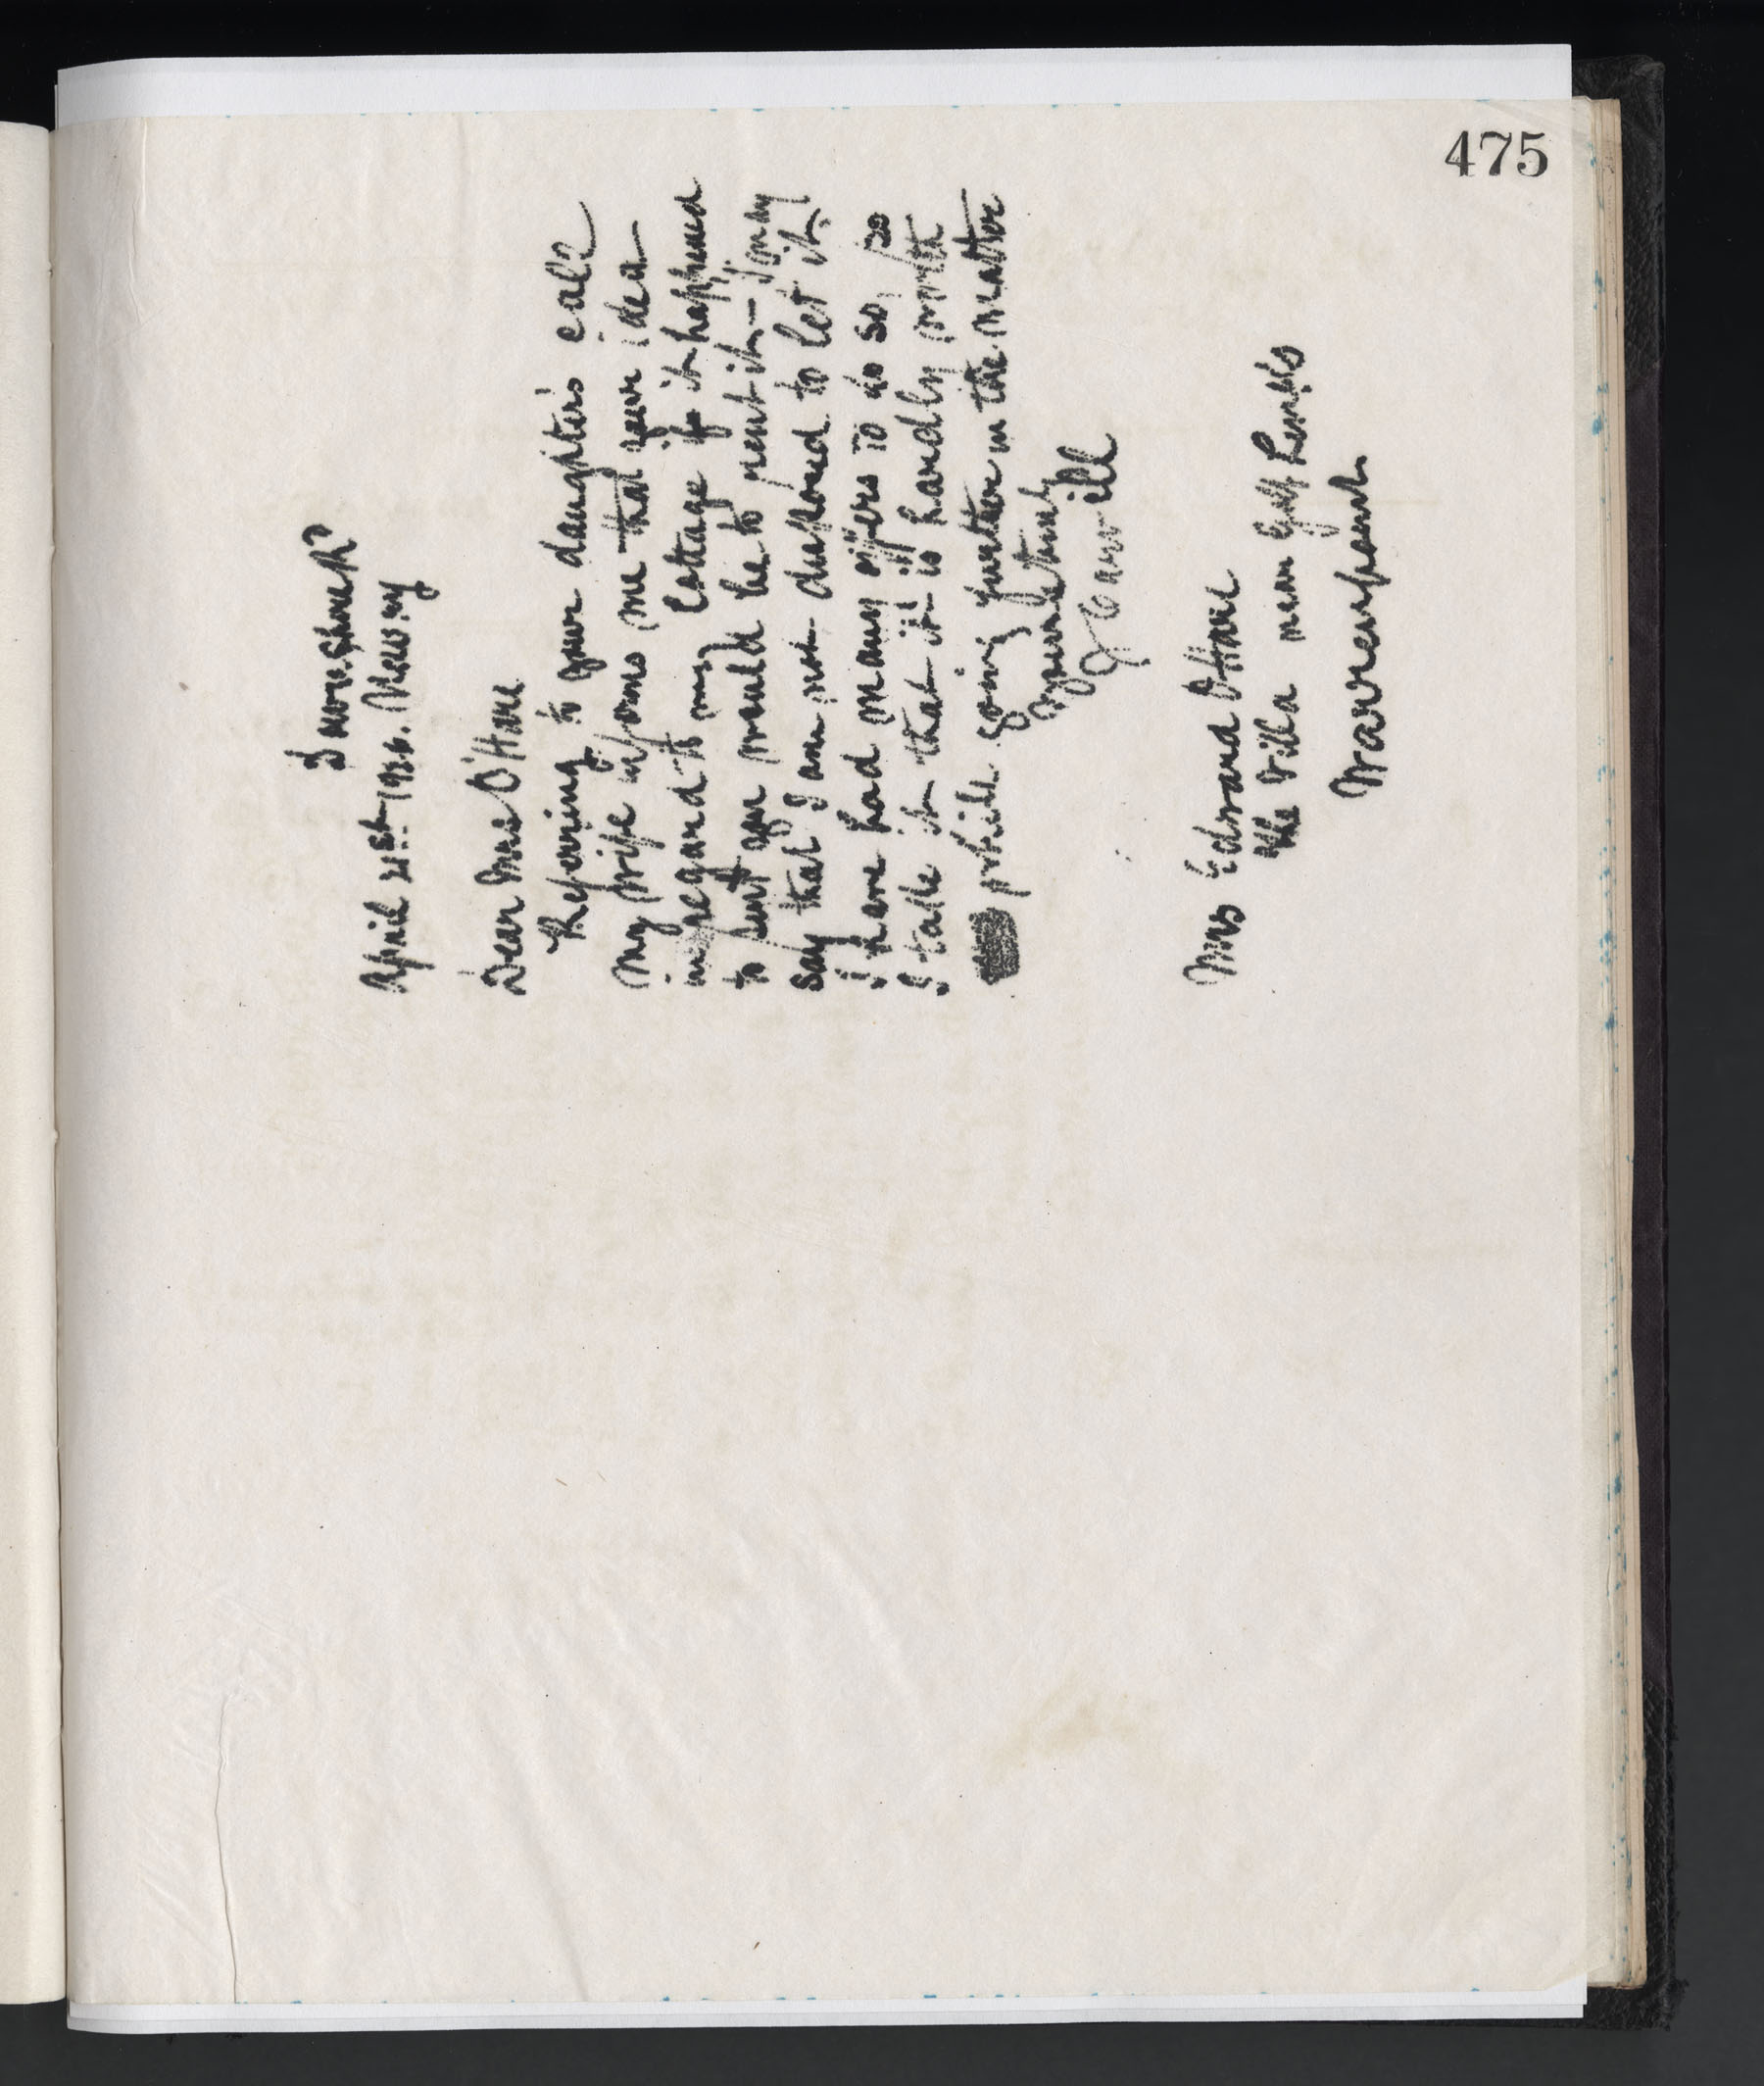 475
April 21st 1936. Newry
Dear Mrs O'Hare
Referring to your daughter's call
my wife informs me that your idea
in regard to my Cottage if it happened
to suit you would be to rent it - I may
say that I am not disposed to let it,
I have had many offers to do so, so
I take it that it is hardly worth
while going further in the matter
Yours truly
Mrs Edward O'Hare
The Villa near Golf Links
Warrenpoint